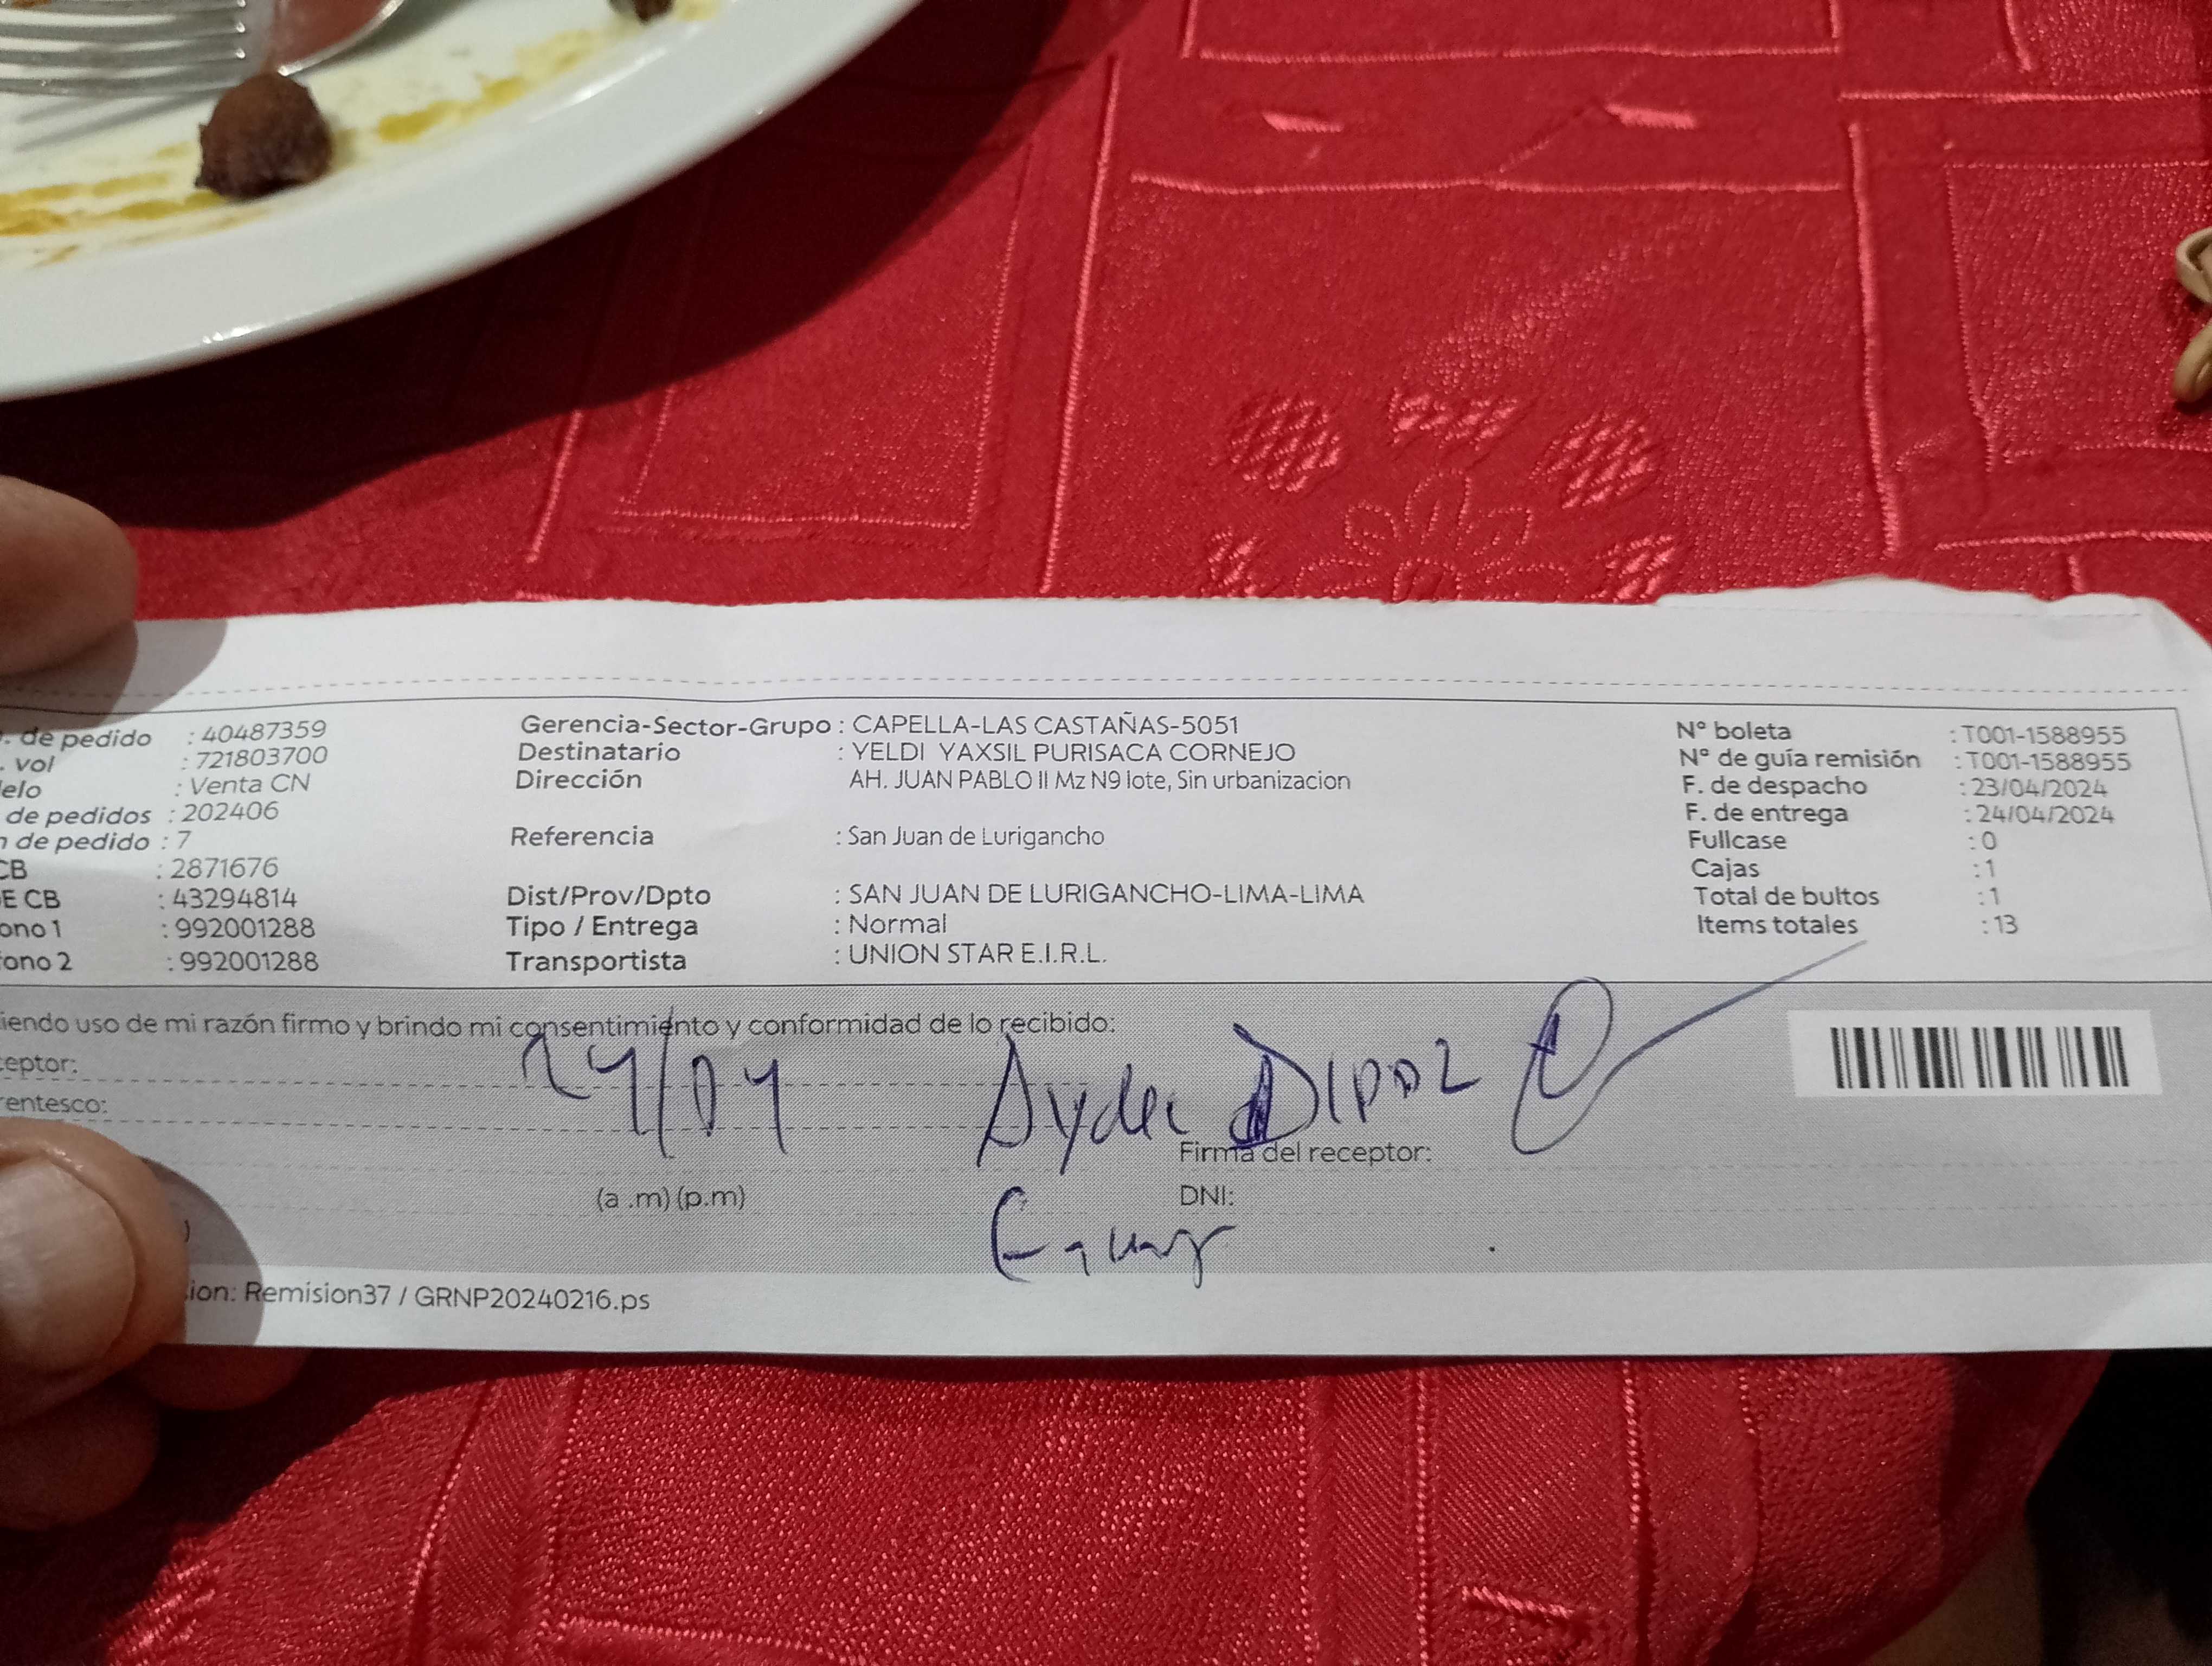 . de pedido : 40487359
. vol : 721803700
elo : Venta CN
de pedidos : 202406
n de pedido : 7
CB : 2871676
E CB : 43294814
ono 1 : 992001288
fono 2 : 992001288
Gerencia-Sector-Grupo : CAPELLA-LAS CASTAÑAS-5051
Destinatario : YELDI YAXSIL PURISACA CORNEJO
Dirección AH. JUAN PABLO II Mz N9 lote, Sin urbanizacion
Referencia : San Juan de Lurigancho
Dist/Prov/Dpto : SAN JUAN DE LURIGANCHO-LIMA-LIMA
Tipo / Entrega : Normal
Transportista : UNION STAR E.I.R.L.
Nº boleta : T001-1588955
Nº de guía remisión : T001-1588955
F. de despacho : 23/04/2024
F. de entrega : 24/04/2024
Fullcase : 0
Cajas : 1
Total de bultos : 1
Items totales : 13
iendo uso de mi razón firmo y brindo mi consentimiento y conformidad de lo recibido:
ceptor:
rentesco:
24/04
Firma del receptor:
(a .m) (p.m)
DNI:
sion: Remision37 / GRNP20240216.ps